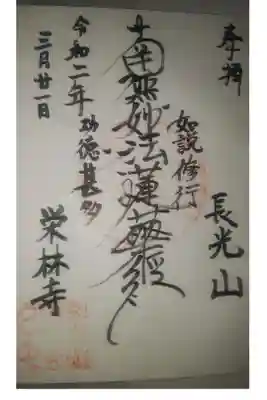 奉拝
長光山
如説修行
南無妙法蓮華経
功徳甚多
栄林寺
令和二年
三月廿一日